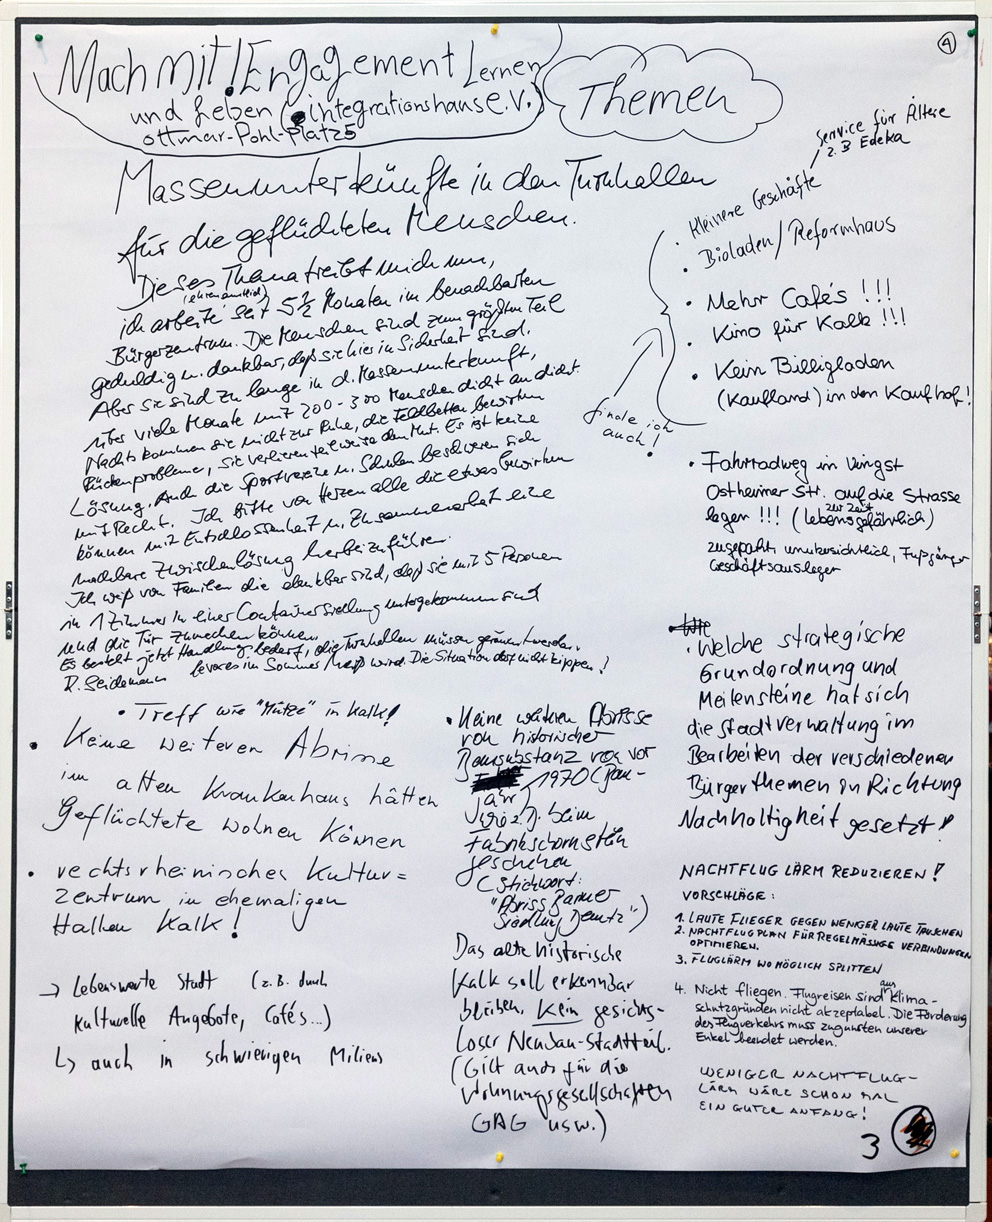 4
Mach mit! Engagement Lernen
und Leben Integrationshaus e.V.
Ottmar-Pohl-Platz 5
Themen
Massenunterkünfte in den Turnhallen
für die geflüchteten Menschen.
Dieses Thema treibt mich um,
(ehrenamtlich)
ich arbeite seit 5½ Monaten im benachbarten
Bürgerzentrum. Die Menschen sind zum größten Teil
geduldig u. dankbar, daß sie hier in Sicherheit sind.
Aber sie sind zu lange in d. Massenunterkunft,
über viele Monate mit 200-300 Menschen dicht an dicht.
Nachts kommen sie nicht zur Ruhe, die Feldbetten bewirken
Rückenprobleme, sie verlieren teilweise den Mut. Es ist keine
Lösung. Auch die Sportvereine u. Schulen beschweren sich
mit Recht. Ich bitte von Herzen alle die etwas bewirken
können mit Entschlossenheit u. Zusammenarbeit eine
machbare Zwischenlösung herbeizuführen.
Ich weiß von Familien die dankbar sind, daß sie mit 5 Personen
in 1 Zimmer in einer Containersiedlung untergekommen sind
und die Tür zumachen können.
Es besteht jetzt Handlungsbedarf, die Turnhallen müssen geräumt werden,
bevor es im Sommer heiß wird. Die Situation darf nicht kippen!
R. Seidemann
• Treff wie "Mütze" in Kalk!
• Keine weiteren Abrisse
im alten Krankenhaus hätten
Geflüchtete wohnen können
• rechtsrheinisches Kultur=
zentrum in ehemaligen
Hallen Kalk!
→ Lebenswerte Stadt (z.B. durch
kulturelle Angebote, Cafés...)
↳ auch in schwierigen Milieus
• Keine weiteren Abrisse
von historischer
Bausubstanz von vor
1970 (Bau-
jahr)
beim
Fabrikschornstein
geschehen
(Stichwort:
"Abriss Barmer
Siedlung, Deutz")
Das alte historische
Kalk soll erkennbar
bleiben, Kein gesichts-
loser Neubau-Stadtteil.
(Gilt auch für die
Wohnungsgesellschaften
GAG usw.)
Service für Ältere
z.B Edeka
• Kleinere Geschäfte
• Bioladen/Reformhaus
• Mehr Cafés !!!
• Kino für Kalk !!!
• Kein Billigladen
(Kaufland) in den Kaufhof!
finde ich
auch!
• Fahrradweg in Vingst
Ostheimer Str. auf die Strasse
legen !!! (zur Zeit lebensgefährlich)
zugeparkt, unübersichtlich, Fußgänger
Geschäftsausleger
• Welche strategische
Grundordnung und
Meilensteine hat sich
die Stadtverwaltung im
Bearbeiten der verschiedenen
Bürgerthemen in Richtung
Nachhaltigkeit gesetzt!
NACHTFLUG LÄRM REDUZIEREN!
VORSCHLÄGE:
1. LAUTE FLIEGER GEGEN WENIGER LAUTE TAUSCHEN
2. NACHTFLUGPLAN FÜR REGELMÄSSIGE VERBINDUNGEN
OPTIMIEREN.
3. FLUGLÄRM WO MÖGLICH SPLITTEN
4. Nicht fliegen. Flugreisen sind aus Klima-
schutzgründen nicht akzeptabel. Die Förderung
des Flugverkehrs muss zugunsten unserer
Enkel beendet werden.
WENIGER NACHTFLUG-
LÄRM WÄRE SCHON MAL
EIN GUTER ANFANG!
3